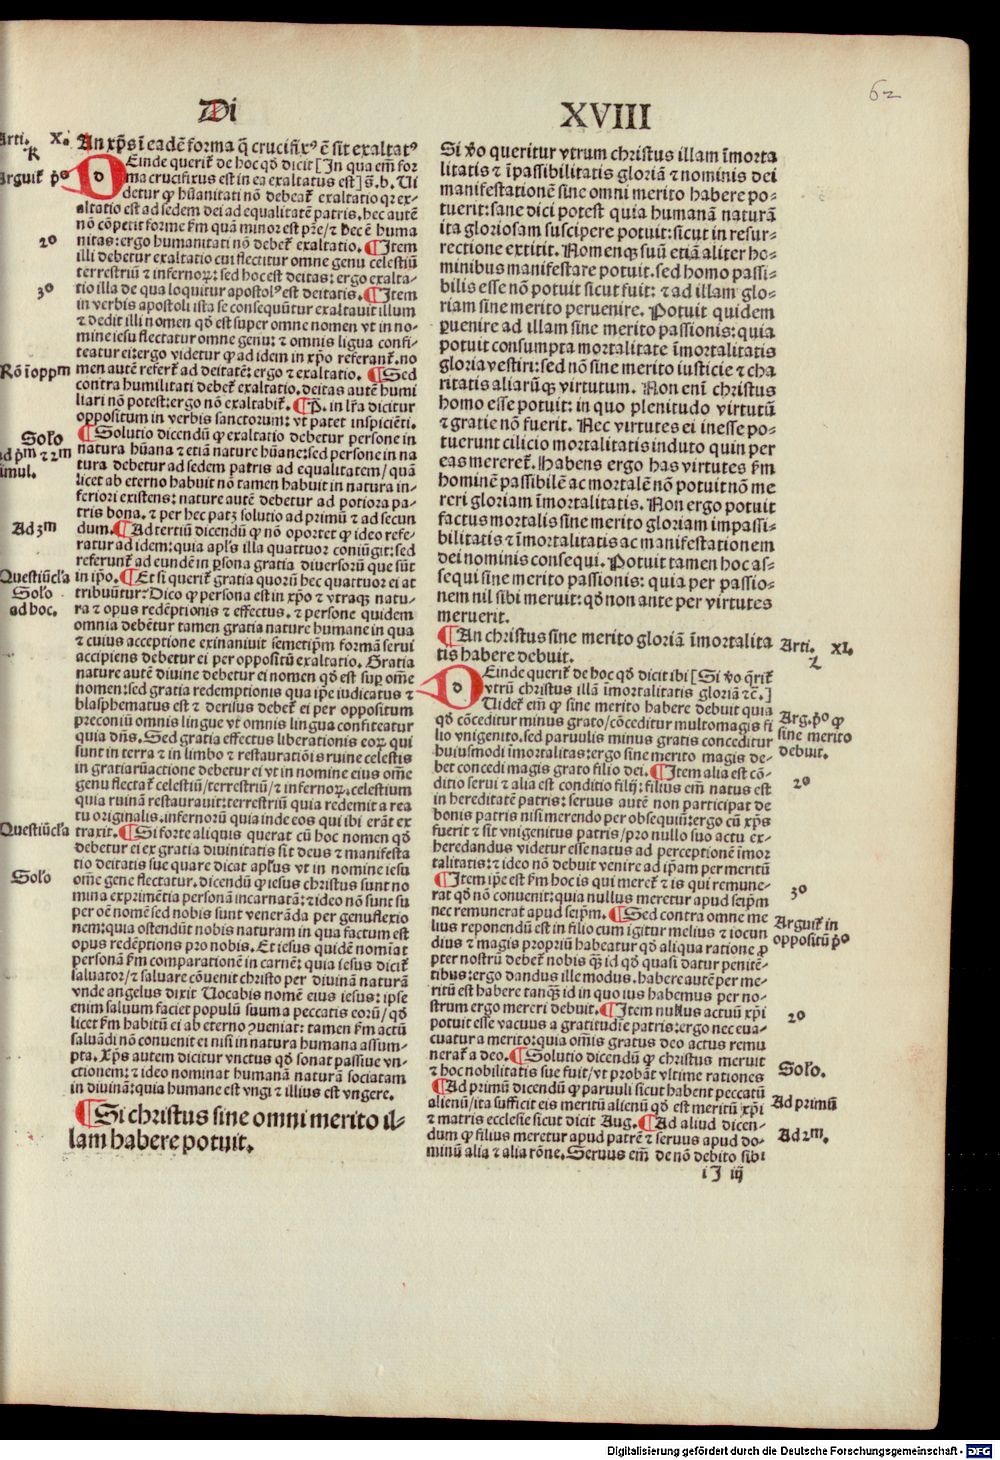 62
Di
XVIII
Arti. X.
k
Arguit̃ p̃º
2º
3º
Rõ ĩ oppm
Solo
ad p̃m ⁊ 2m
simul.
Ad 3m
Questiũcl'a
Solo
ad hoc.
Questiũcl'a
Solo
An xp̃s ĩ eadẽ forma q̃ crucifixꝰ ẽ sit exaltatꝰ
DEinde querit̃ de hoc qd̃ dicit [In qua em̃ for
ma crucifixus est in ea exaltatus est] g̃.b. Ui
detur ꝙ hũanitati nõ debeat̃ exaltatio qz ex-
altatio est ad sedem dei ad equalitatẽ patris. hec autẽ
nõ cõpetit forme ẞm quã minor est pr̃e/⁊ hec ẽ huma
nitas: ergo humanitati nõ debet̃ exaltatio. ¶Item
illi debetur exaltatio cui flectitur omne genu celestiũ
terrestriũ ⁊ infernoꝝ: sed hoc est deitas: ergo exalta-
tio illa de qua loquitur apostolꝰ est deitatis. ¶Item
in verbis apostoli ista se consequũtur exaltauit illum
⁊ dedit illi nomen qd̃ est super omne nomen vt in no-
mine iesu flectatur omne genu: ⁊ omnis ligua confi-
teatur ei: ergo videtur ꝙ ad idem in xp̃o referant̃. no
men autẽ refert̃ ad deitatẽ: ergo ⁊ exaltatio. ¶Sed
contra humilitati debet̃ exaltatio. deitas autẽ humi
liari nõ potest: ergo nõ exaltabit̃. ¶P̃. in lr̃a dicitur
oppositum in verbis sanctorum: vt patet inspiciẽti.
¶Solutio dicendũ ꝙ exaltatio debetur persone in
natura hũana ⁊ etiã nature hũane: sed persone in na
tura debetur ad sedem patris ad equalitatem/quã
licet ab eterno habuit nõ tamen habuit in natura in-
feriori existens: nature autẽ debetur ad potiora pa-
tris bona. ⁊ per hec patꝫ solutio ad primũ ⁊ ad secun
dum. ¶Ad tertiũ dicendũ ꝙ nõ oportet ꝙ ideo refe-
ratur ad idem: quia apl's illa quattuor coniũgit: sed
referunt̃ ad eundẽ in p̱sona gratia diuersorũ que sũt
in ip̃o. ¶Et si querit̃ gratia quorũ hec quattuor ei at
tribuũtur? Dico ꝙ persona est in xp̃o ⁊ vtraqꝫ natu-
ra ⁊ opus redẽptionis ⁊ effectus. ⁊ persone quidem
omnia debẽtur tamen gratia nature humane in qua
⁊ cuius acceptione exinaniuit semetip̃m formã serui
accipiens debetur ei per oppositũ exaltatio. Gratia
nature autẽ diuine debetur ei nomen qd̃ est sup̱ om̃e
nomen: sed gratia redemptionis qua ip̃e iudicatus ⁊
blasphematus est ⁊ derisus debet̃ ei per oppositum
preconiũ omnis lingue vt omnis lingua confiteatur
quia dñs. Sed gratia effectus liberationis eoꝝ qui
sunt in terra ⁊ in limbo ⁊ restauratiõis ruine celestis
in gratiarũ actione debetur ei vt in nomine eius om̃e
genu flectat̃ celestiũ/terrestriũ/⁊ infernoꝝ. celestium
quia ruinã restaurauit: terrestriũ quia redemit a rea
tu originalis. infernorũ quia inde eos qui ibi erãt ex
traxit. ¶Si forte aliquis querat cũ hoc nomen qd̃
debetur ei ex gratia diuinitatis sit deus ⁊ manifesta
tio deitatis sue quare dicat apl'us vt in nomine iesu
om̃e gene flectatur. dicendũ ꝙ iesus christus sunt no
mina exprimẽtia personã incarnatã: ⁊ ideo nõ sunt su
per oẽ nomẽ sed nobis sunt venerãda per genuflexio
nem: quia ostendũt nobis naturam in qua factum est
opus redẽptions pro nobis. Et iesus quidẽ nomiat
personã ẞm comparationẽ in carnẽ: quia iesus dicit̃
saluator/⁊ saluare cõuenit christo per diuinã naturã
vnde angelus dixit Uocabis nomẽ eius iesus: ipse
enim saluum faciet populũ suum a peccatis eorũ/qd̃
licet ẞm habitũ ei ab eterno ꝯueniat: tamen ẞm actũ
saluãdi nõ conuenit ei nisi in natura humana assum-
pta. Xp̃s autem dicitur vnctus qd̃ sonat passiue vn-
ctionem: ⁊ ideo nominat humanã naturã sociatam
in diuinã: quia humane est vngi ⁊ illius est vngere.
¶Si christus sine omni merito il-
lam habere potuit.
Si v̾o queritur vtrum christus illam ĩmorta
litatis ⁊ ĩpassibilitatis gloriã ⁊ nominis dei
manifestationẽ sine omni merito habere po-
tuerit: sane dici potest quia humanã naturã
ita gloriosam suscipere potuit: sicut in resur-
rectione extitit. Nomenqꝫ suũ etiã aliter ho-
minibus manifestare potuit. sed homo passi-
bilis esse nõ potuit sicut fuit: ⁊ ad illam glo-
riam sine merito peruenire. Potuit quidem
p̱uenire ad illam sine merito passionis: quia
potuit consumpta mortalitate ĩmortalitatis
gloria vestiri: sed nõ sine merito iusticie ⁊ cha
ritatis aliarũqꝫ virtutum. Non eni᷑ christus
homo esse potuit: in quo plenitudo virtutũ
⁊ gratie nõ fuerit. Nec virtutes ei inesse po-
tuerunt cilicio mortalitatis induto quin per
eas mereret̃. Habens ergo has virtutes ẞm
hominẽ passibilẽ ac mortalẽ nõ potuit nõ me
reri gloriam ĩmortalitatis. Non ergo potuit
factus mortalis sine merito gloriam impassi-
bilitatis ⁊ ĩmortalitatis ac manifestationem
dei nominis consequi. Potuit tamen hoc as-
sequi sine merito passionis: quia per passio-
nem nil sibi meruit: qd̃ non ante per virtutes
meruerit.
¶An christus sine merito gloriã ĩmortalita
tis habere debuit.
DEinde querit̃ de hoc qd̃ dicit ibi [Si v̾o q̃rit̃
vtrũ christus illã ĩmortalitatis gloriã ⁊c̃.]
Uidet̃ em̃ ꝙ sine merito habere debuit quia
qd̃ cõceditur minus grato/cõceditur multomagis fi
lio vnigenito. sed paruulis minus gratis conceditur
huiusmodi ĩmortalitas: ergo sine merito magis de-
bet concedi magis grato filio dei. ¶Item alia est cõ-
ditio serui ⁊ alia est conditio filij: filius em̃ natus est
in hereditatẽ patris: seruus autẽ non participat de
bonis patris nisi merendo per obsequiũ: ergo cũ xp̃s
fuerit ⁊ sit vnigenitus patris/pro nullo suo actu ex-
heredandus videtur esse natus ad perceptionẽ ĩmor
talitatis: ⁊ ideo nõ debuit venire ad ip̃am per meritũ
¶Item ip̃e est ẞm hoc is qui meret̃ ⁊ is qui remune-
rat qd̃ nõ conuenit: quia nullus meretur apud seip̃m
nec remunerat apud seip̃m. ¶Sed contra omne me
lius reponendũ est in filio cum igitur melius ⁊ iocun
dius ⁊ magis propriũ habeatur qd̃ aliqua ratione ꝓ
pter nostrũ debet̃ nobis qꝫ̃ id qd̃ quasi datur penitẽ-
tibus: ergo dandus ille modus. habere autẽ per me-
ritũ est habere tanqꝫ̃ id in quo ius habemus per no-
strum ergo mereri debuit. ¶Item nullus actuũ xp̃i
potuit esse vacuus a gratitudĩe patris: ergo nec eua-
cuatur a merito: quia om̃is gratus deo actus remu
nerat̃ a deo. ¶Solutio dicendũ ꝙ christus meruit
⁊ hoc nobilitatis sue fuit/vt probãt vltime rationes
¶Ad primũ dicendũ ꝙ paruuli sicut habent peccatũ
alienũ/ita sufficit eis meritũ alienũ qd̃ est meritũ xp̃i
⁊ matris ecclesie sicut dicit Aug. ¶Ad aliud dicen-
dum ꝙ filius meretur apud patrẽ ⁊ seruus apud do-
minũ alia ⁊ alia rõne. Seruus em̃ de nõ debito sibi
iJ iij
Arti. XI.
l
Arg. p̃º ꝙ
sine merito
debuit.
2º
3º
Arguit̃ in
oppositũ p̃º
2º
Solo.
Ad primũ
Ad 2m.
Digitalisierung gefördert durch die Deutsche Forschungsgemeinschaft - DFG